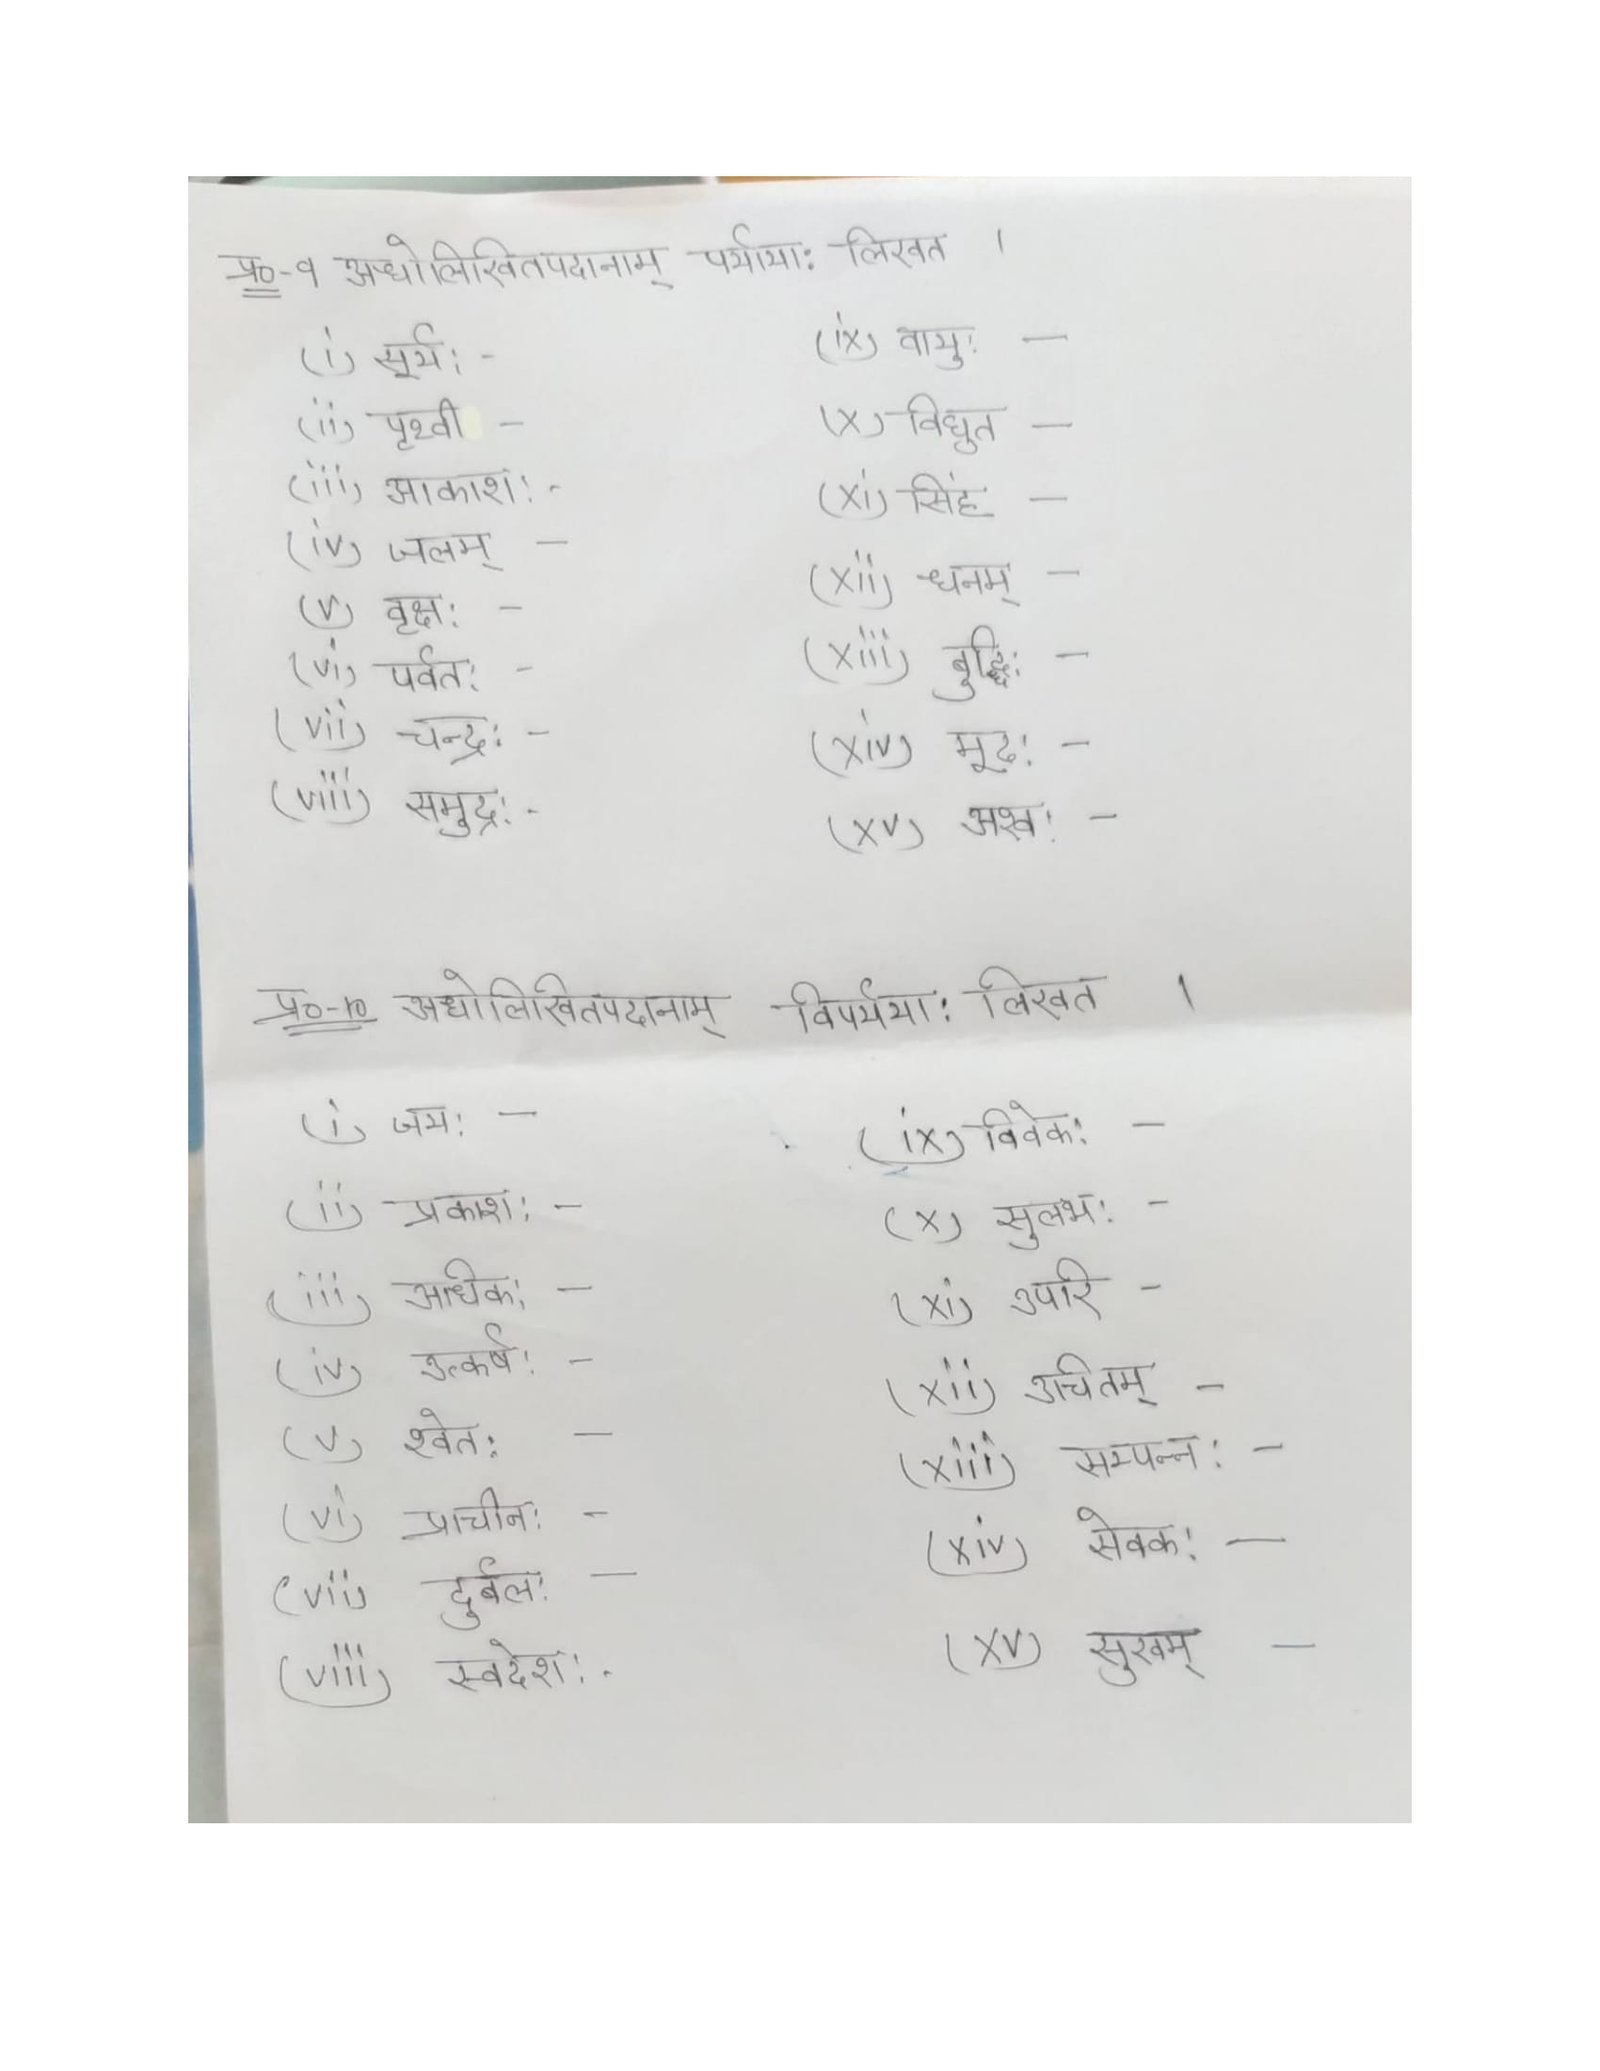 प्र०-९ अधोलिखितपदानाम् पर्यायाः लिखत ।
(i) सूर्यः -
(ii) पृथ्वी -
(iii) आकाशः -
(iv) जलम् -
(v) वृक्षः -
(vi) पर्वतः -
(vii) चन्द्रः -
(viii) समुद्रः -
(ix) वायुः -
(x) विधुत -
(xi) सिंह -
(xii) धनम् -
(xiii) बुद्धिः -
(xiv) मूढः -
(xv) अश्वः -
प्र०-१० अधोलिखितपदानाम् विपर्ययाः लिखत ।
(i) जयः -
(ii) प्रकाशः -
(iii) अधिकः -
(iv) उत्कर्षः -
(v) श्वेतः -
(vi) प्राचीनः -
(vii) दुर्बलः -
(viii) स्वदेशः -
(ix) विवेकः -
(x) सुलभः -
(xi) उपरि -
(xii) उचितम् -
(xiii) सम्पन्नः -
(xiv) सेवकः -
(xv) सुखम् -